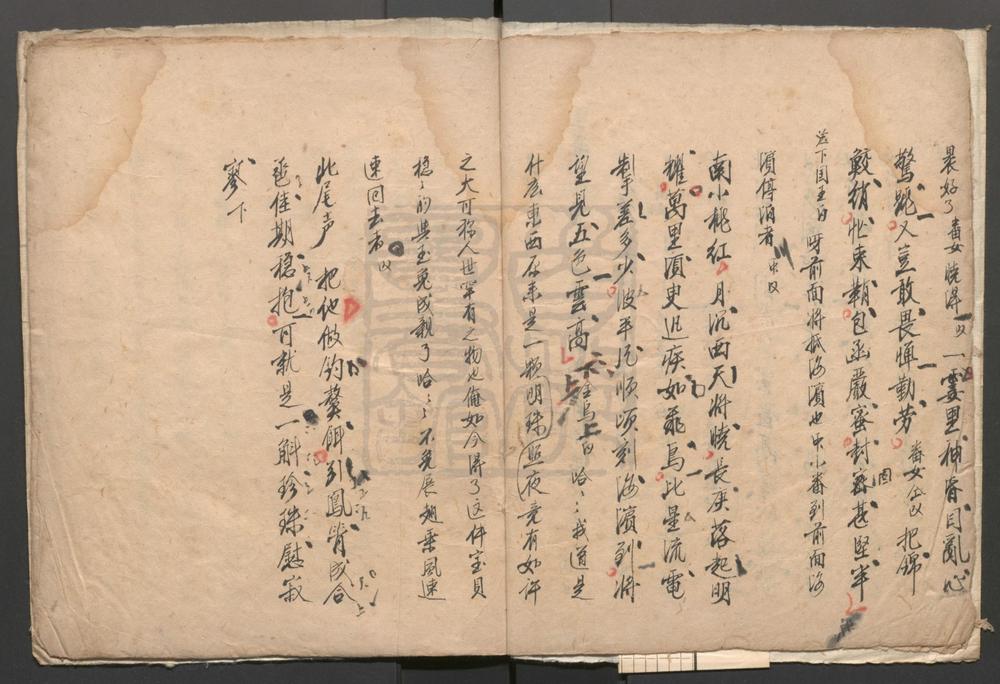 最好了 番女 曉得 又 一霎里神昏目亂心
驚跳人豈敢畏憚勤勞 番女公又 把錦
鮫綃忙束鞘包函嚴密封密甚堅牢
丞下国王白 呀前面將抵海濱也中小番到前面海
濱停泊者 中又
南小桃紅 月沉西天將曉長庚落起明
耀萬里須臾迅疾如飛鳥比星流電
掣差多少波平風順頃刻海濱到將
望見五色雲高 王鳥上白 哈㆓我道是
什庅東西原來是一顆明珠照夜竟有如許
之大可称人世罕有之物也俺如今得了这件宝貝
穏㆓的與玉兔成親了哈㆓㆓不免展翅乗風速
速回去者 又
北尾声 把他做釣鰲餌引鳳背成合
𢀿佳期穏抱可就是一斛珍珠慰寂
寥 下